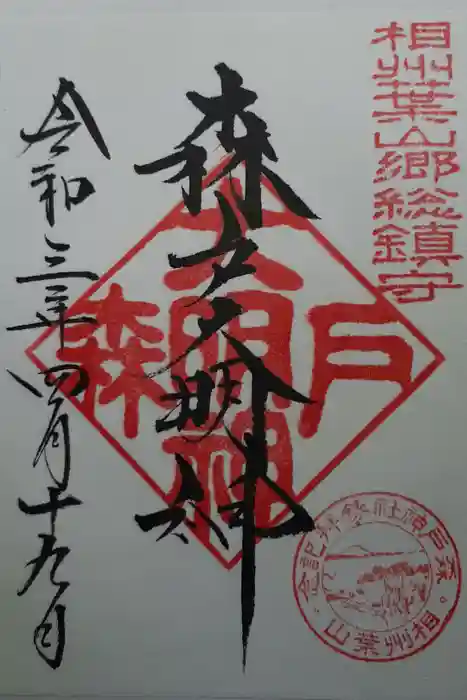 相州葉山郷総鎮守
森戸大明神
森戸大明神
令和三年四月十九日
森戸神社參拜記念
相州葉山